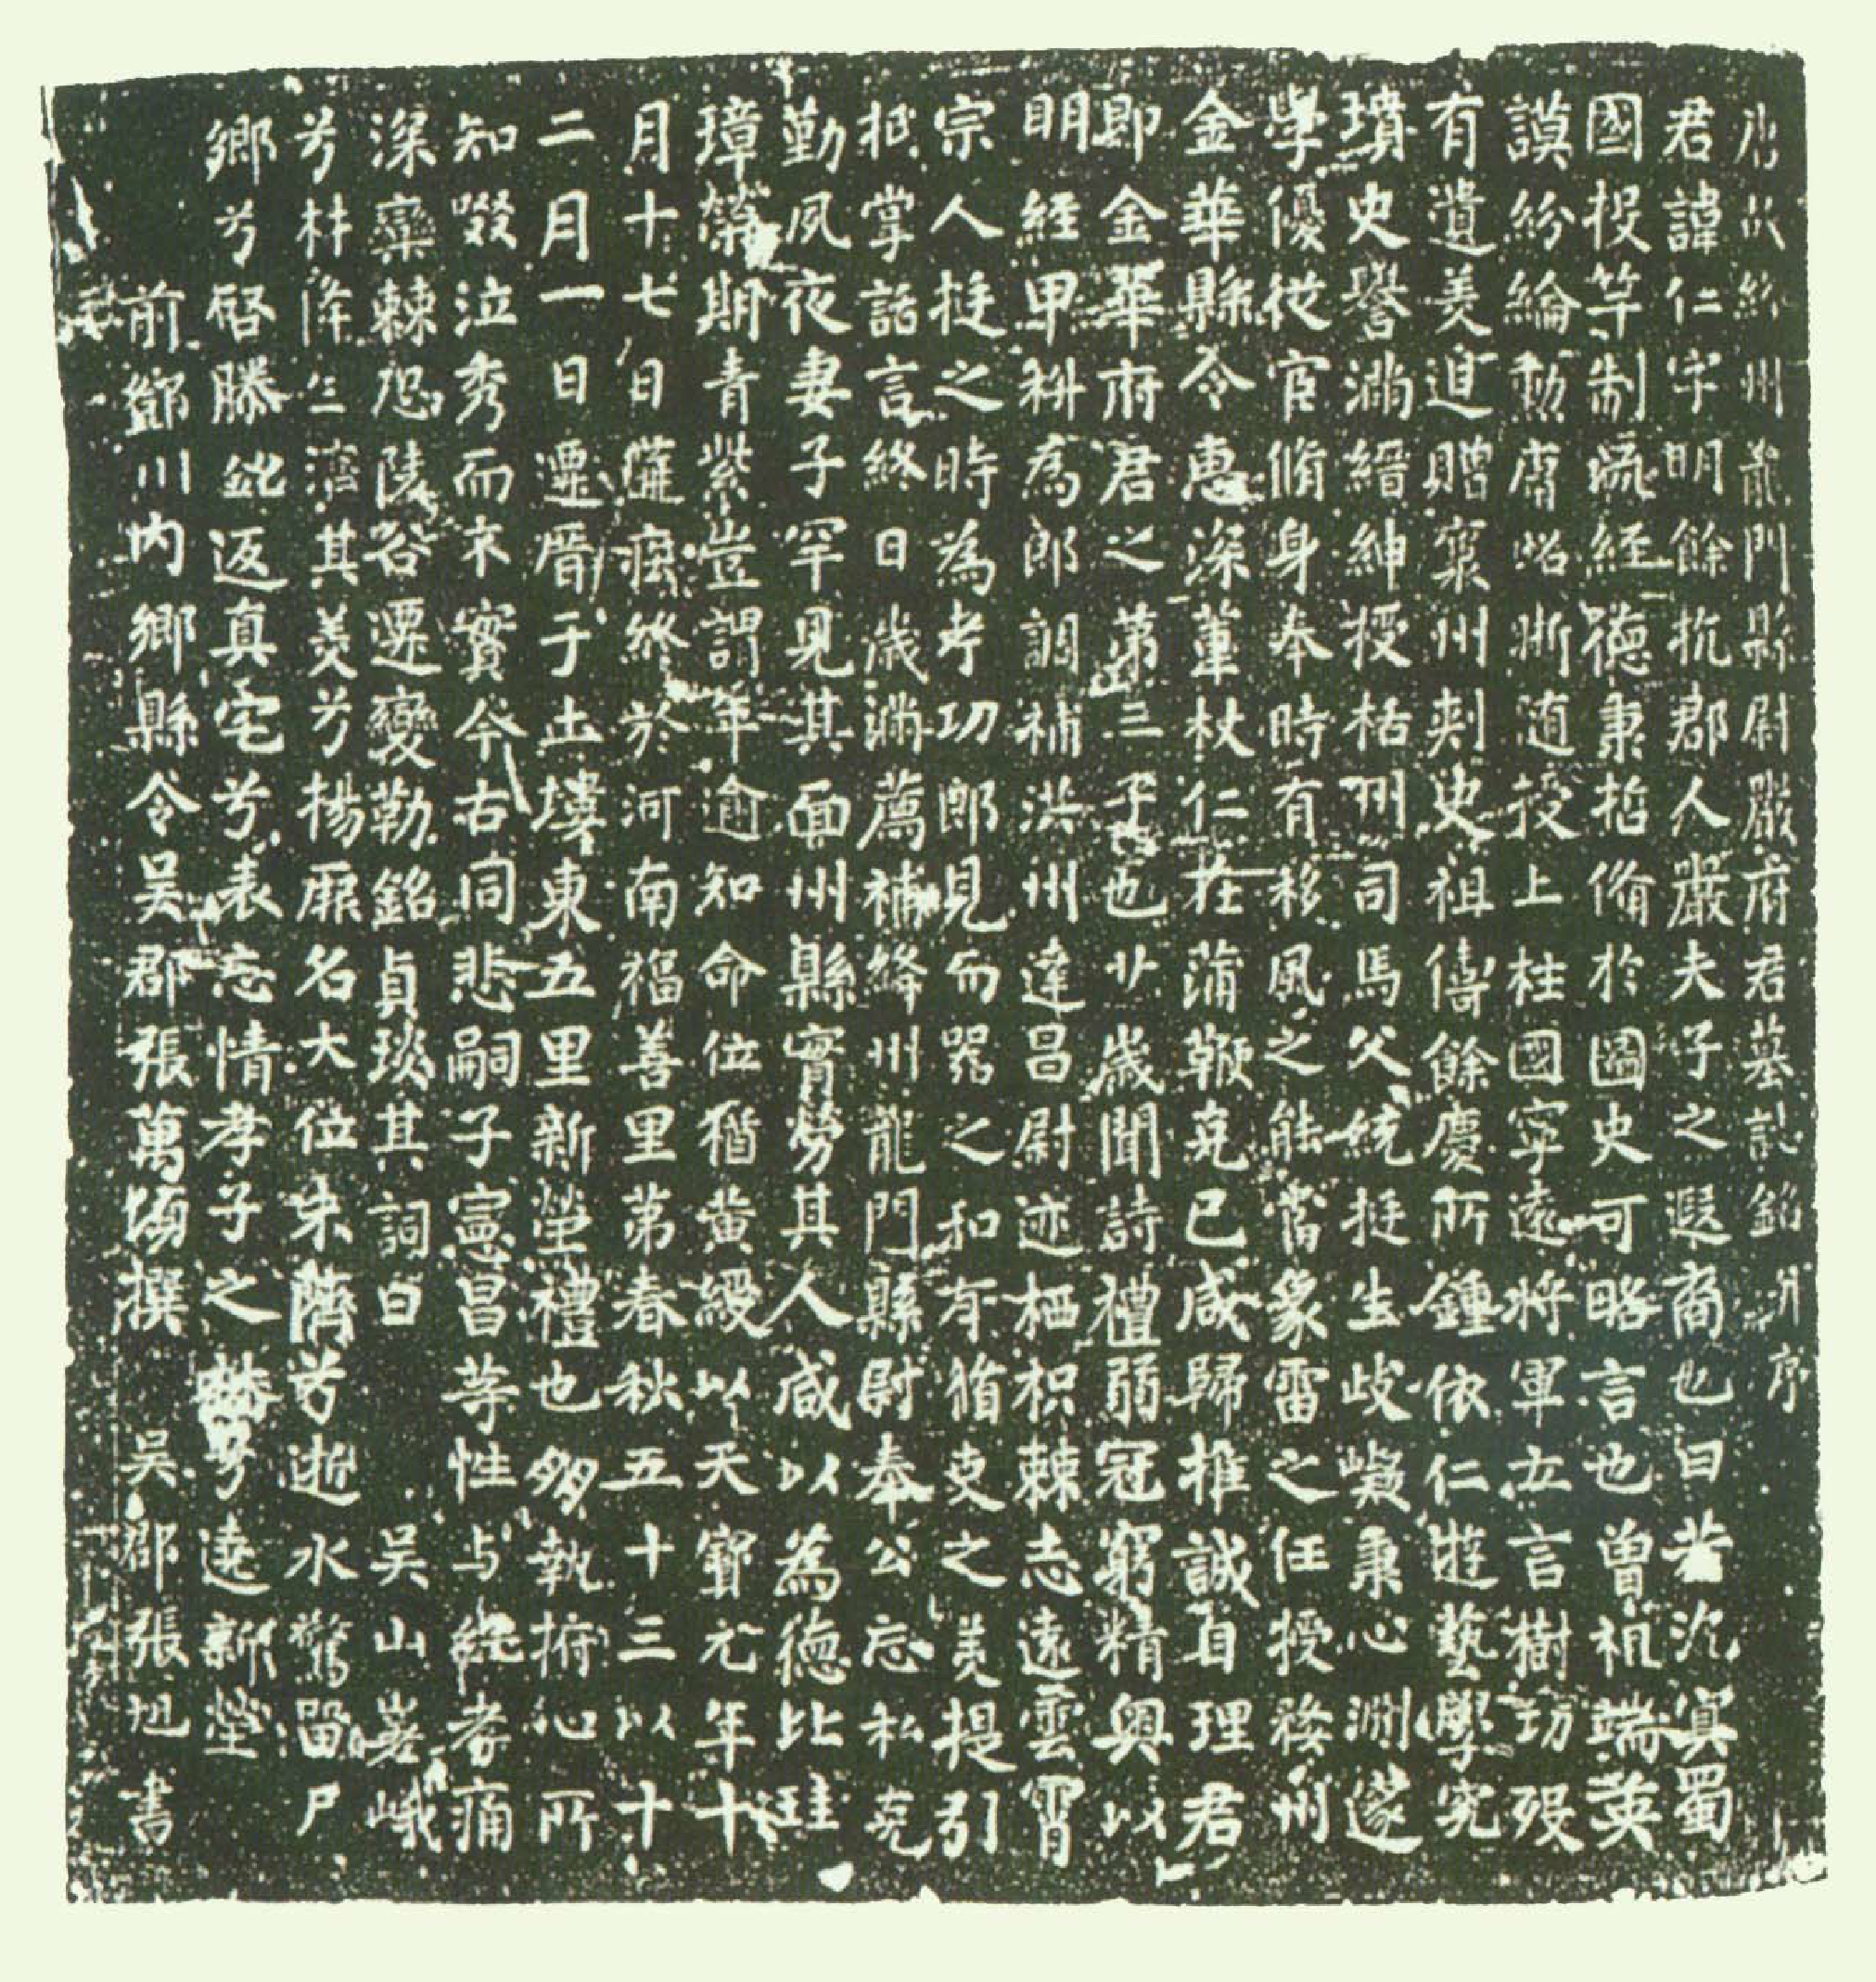 唐故絳州龍門縣尉嚴府君墓誌銘并序
君諱仁字明餘杭郡人嚴夫子之遐裔也曰若沉冥蜀
國投竿制流經德秉哲脩於圖史可略言也曾祖端英
謨紛綸勳庸昭晣適授上柱國寧遠將軍立言樹功歿
有遺美追贈襄州刺史祖儔餘慶所鍾依仁遊藝學究
墳史譽滿縉紳授栝州司馬父統挺生歧嶷秉心淵邃
學優從官脩身奉時有移風之能當象雷之任授婺州
金華縣令惠深蕈杖仁在蒲鞭克已咸歸推誠自理君
即金華府君之第三子也廿歲聞詩禮弱冠窮精奧以
明經甲科為郎調補洪州達昌尉迹栖枳棘志遠雲霄
宗人挺之時為考功郎見而器之和有脩吏之美提引
抵掌話言終日歲滿薦補絳州龍門縣尉奉公忘私克
勤夙夜妻子罕見其面州縣實勞其人咸以為德比珪
璋榮期青紫豈謂年逾知命位猶黃綬以天寶元年十
月十七日遘疾終於河南福善里第春秋五十三以十
二月一日遷厝于土塿東五里新塋禮也多執拊心所
知啜泣秀而不實今古同悲嗣子憲昌等性與純者痛
深欒棘恐陵谷遷變勒銘貞琰其詞曰 吳山峩峨
兮林降三濟其美兮揚厥名大位未躋兮逝水驚留尸
鄉兮啓滕此返真宅兮表忘情孝子之慕兮遶新塋
前鄧川内鄉縣令吴郡張萬頃撰 吴郡張旭書